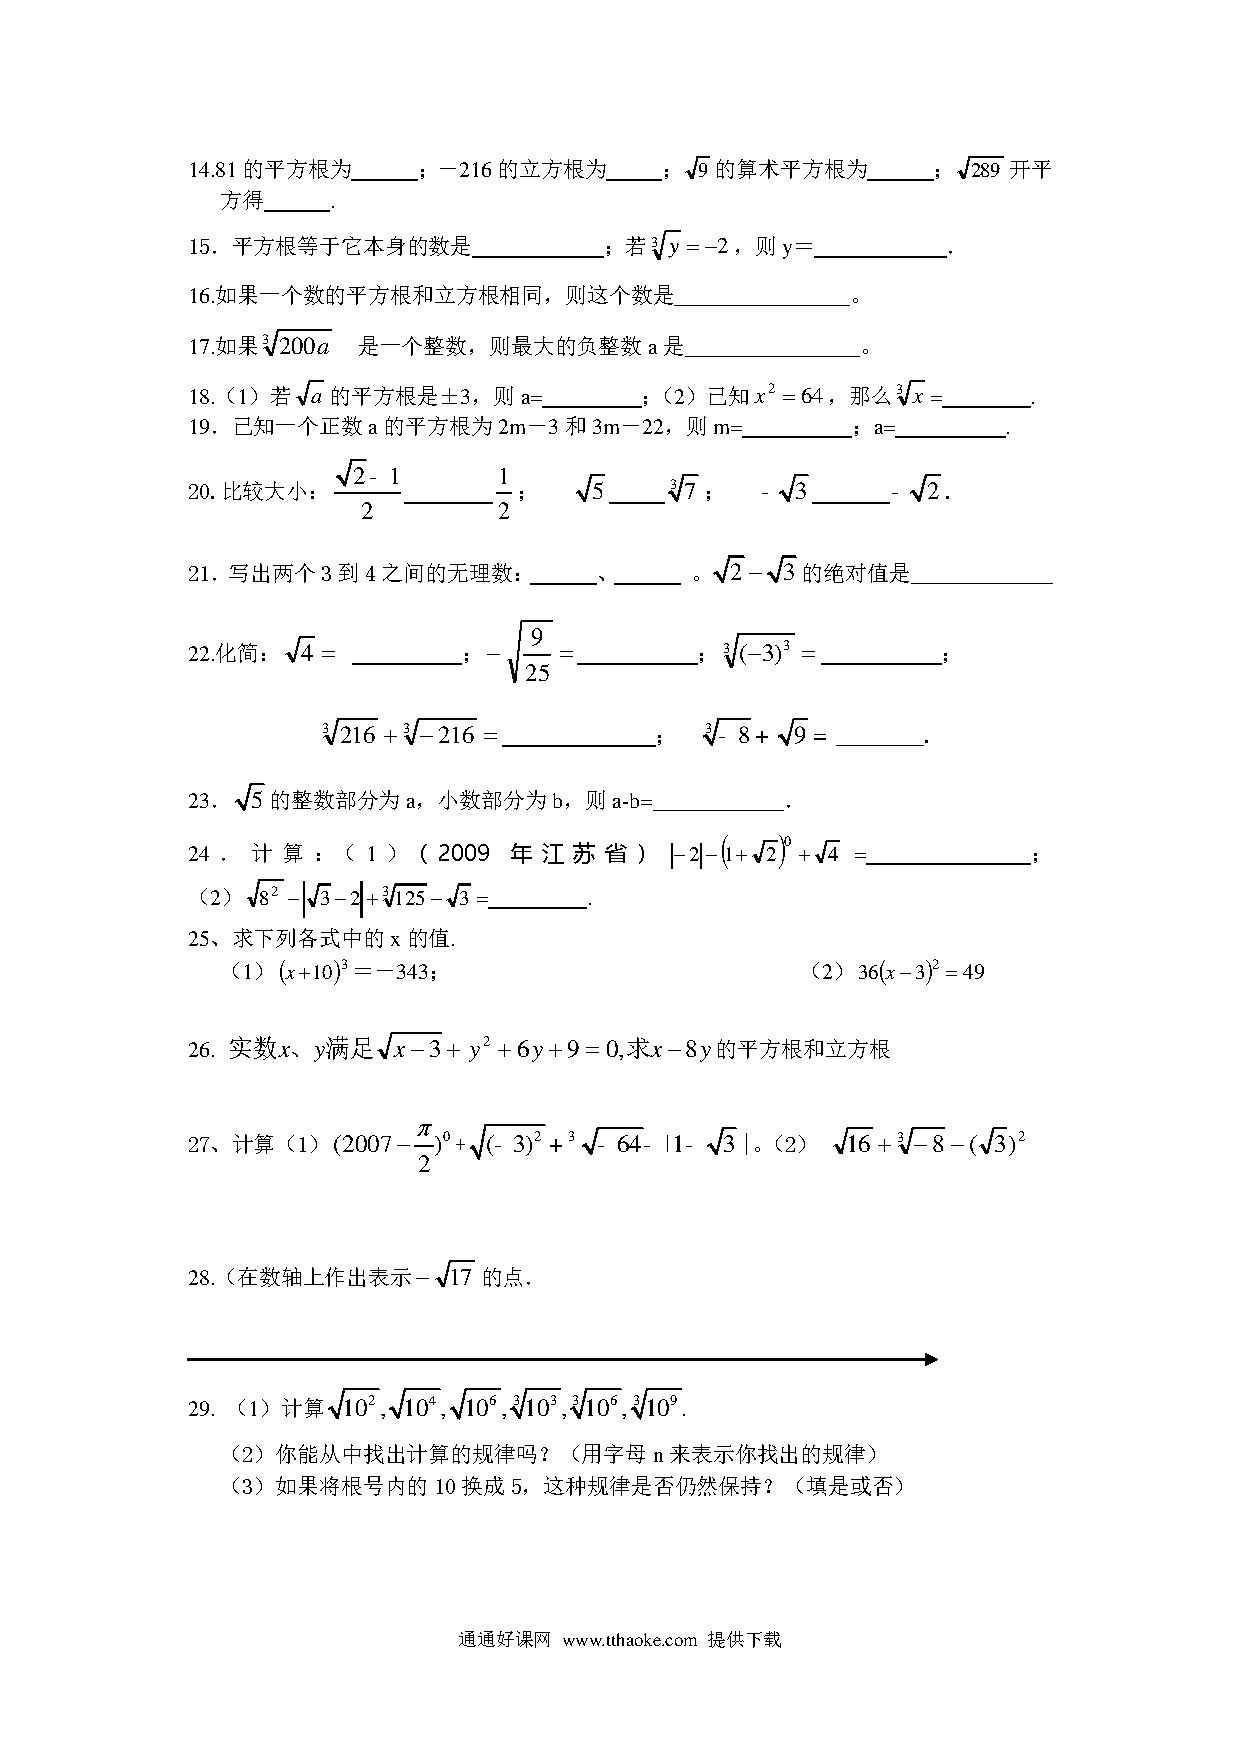 14.81 的平方根为______；－216 的立方根为_____； √9 的算术平方根为______； √289 开平
方得______.
15．平方根等于它本身的数是____________；若 ∛y = −2，则 y＝____________．
16.如果一个数的平方根和立方根相同，则这个数是________________。
17.如果 ∛200a 是一个整数，则最大的负整数 a 是________________。
18.（1）若 √a 的平方根是±3，则 a=_________；（2）己知 x² = 64，那么 ∛x =________.
19．己知一个正数 a 的平方根为 2m－3 和 3m－22，则 m=__________；a=__________.
20.比较大小： (√2- 1)/2 ________ 1/2； √5 _____ ∛7； - √3_______- √2．
21．写出两个 3 到 4 之间的无理数：______、______ 。 √2 − √3 的绝对值是_____________
22.化简： √4 = __________；−√(9/25) =___________；∛(−3)³ =___________；
∛216 + ∛−216 =______________； ∛- 8 + √9 = ________．
23． √5 的整数部分为 a，小数部分为 b，则 a-b=____________．
24 ． 计 算 ：（ 1 ）( 2009 年 江 苏 省 ) |−2| − (1+ √2)⁰ + √4 =_______________；
（2） √8² − |√3 − 2| + ∛125 − √3 =_________.
25、求下列各式中的 x 的值.
（1）(x+10)³＝－343； （2）36(x − 3)² = 49
26. 实数x、y满足 √x − 3 + y² + 6y + 9 = 0,求x − 8y的平方根和立方根
27、计算（1）(2007 − π/2)⁰ + √(- 3)² + ∛- 64 - |1- √3 |。（2） √16 + ∛−8 − (√3)²
28.（在数轴上作出表示− √17 的点．
29. （1）计算 √10², √10⁴, √10⁶, ∛10³, ∛10⁶, ∛10⁹.
（2）你能从中找出计算的规律吗？（用字母 n 来表示你找出的规律）
（3）如果将根号内的 10 换成 5，这种规律是否仍然保持？（填是或否）
通通好课网 www.tthaoke.com 提供下载